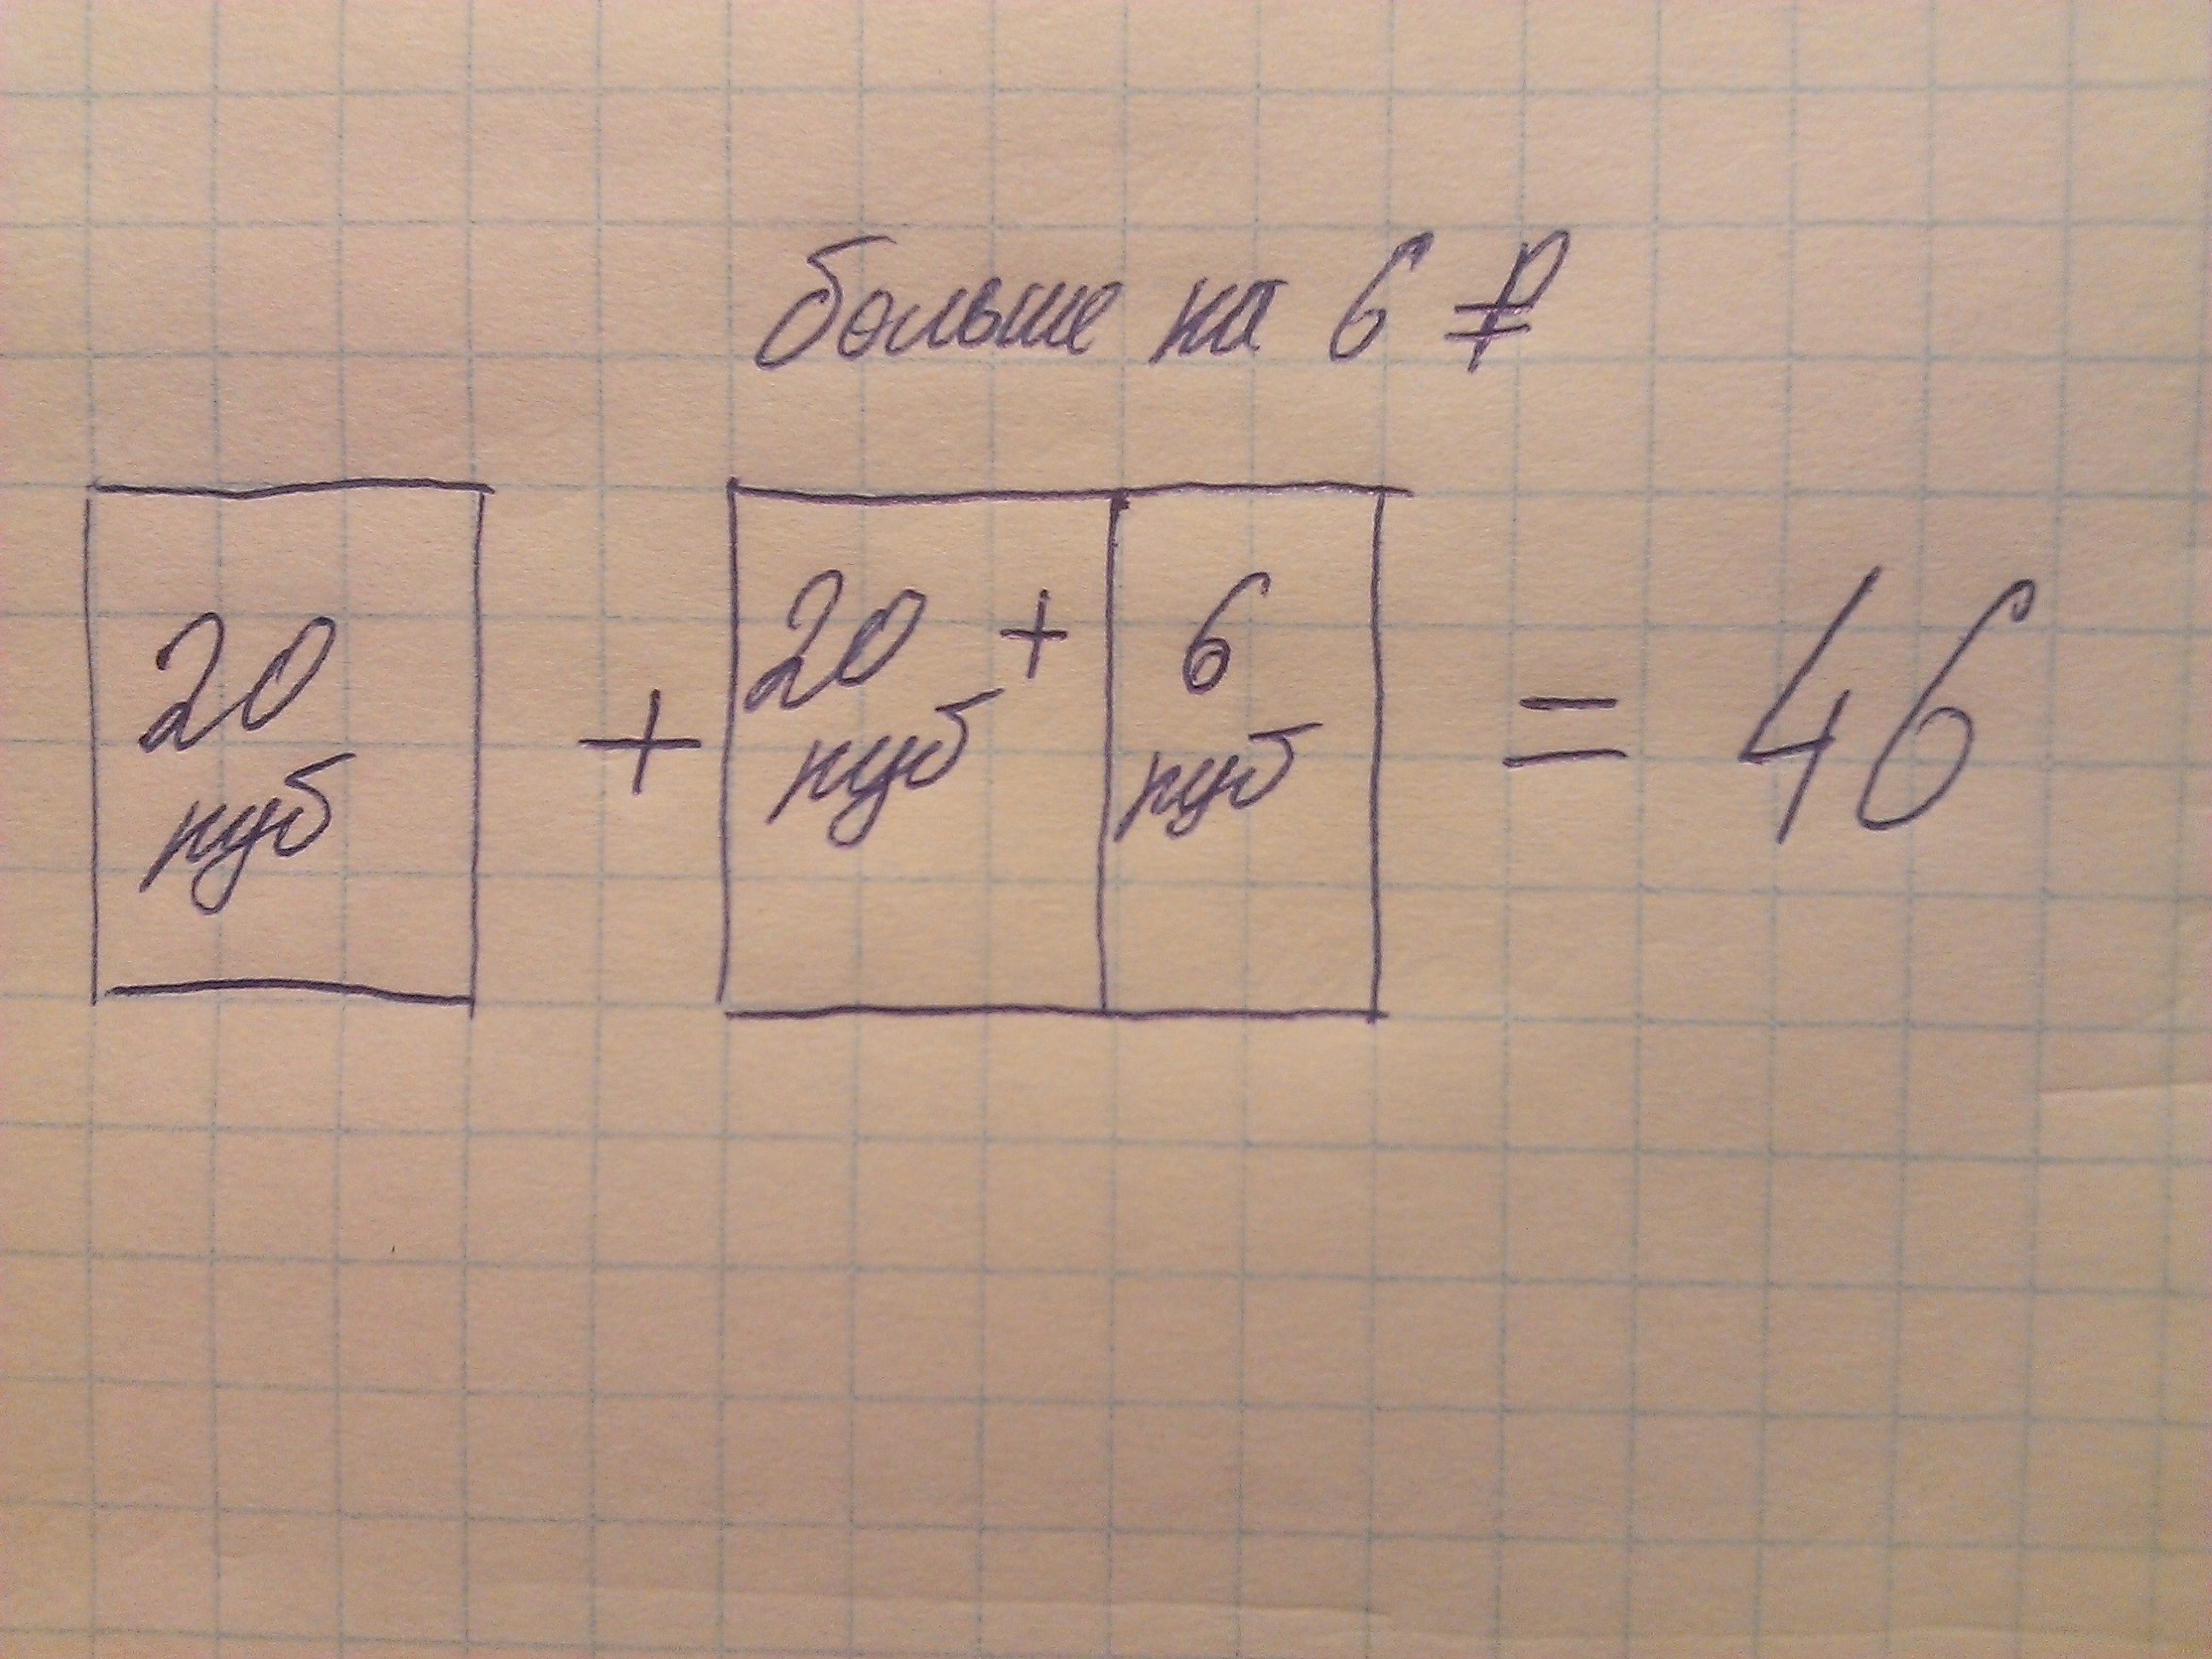 больше на 6 ₽
20
руб
+
20 +
руб
6
руб
= 46